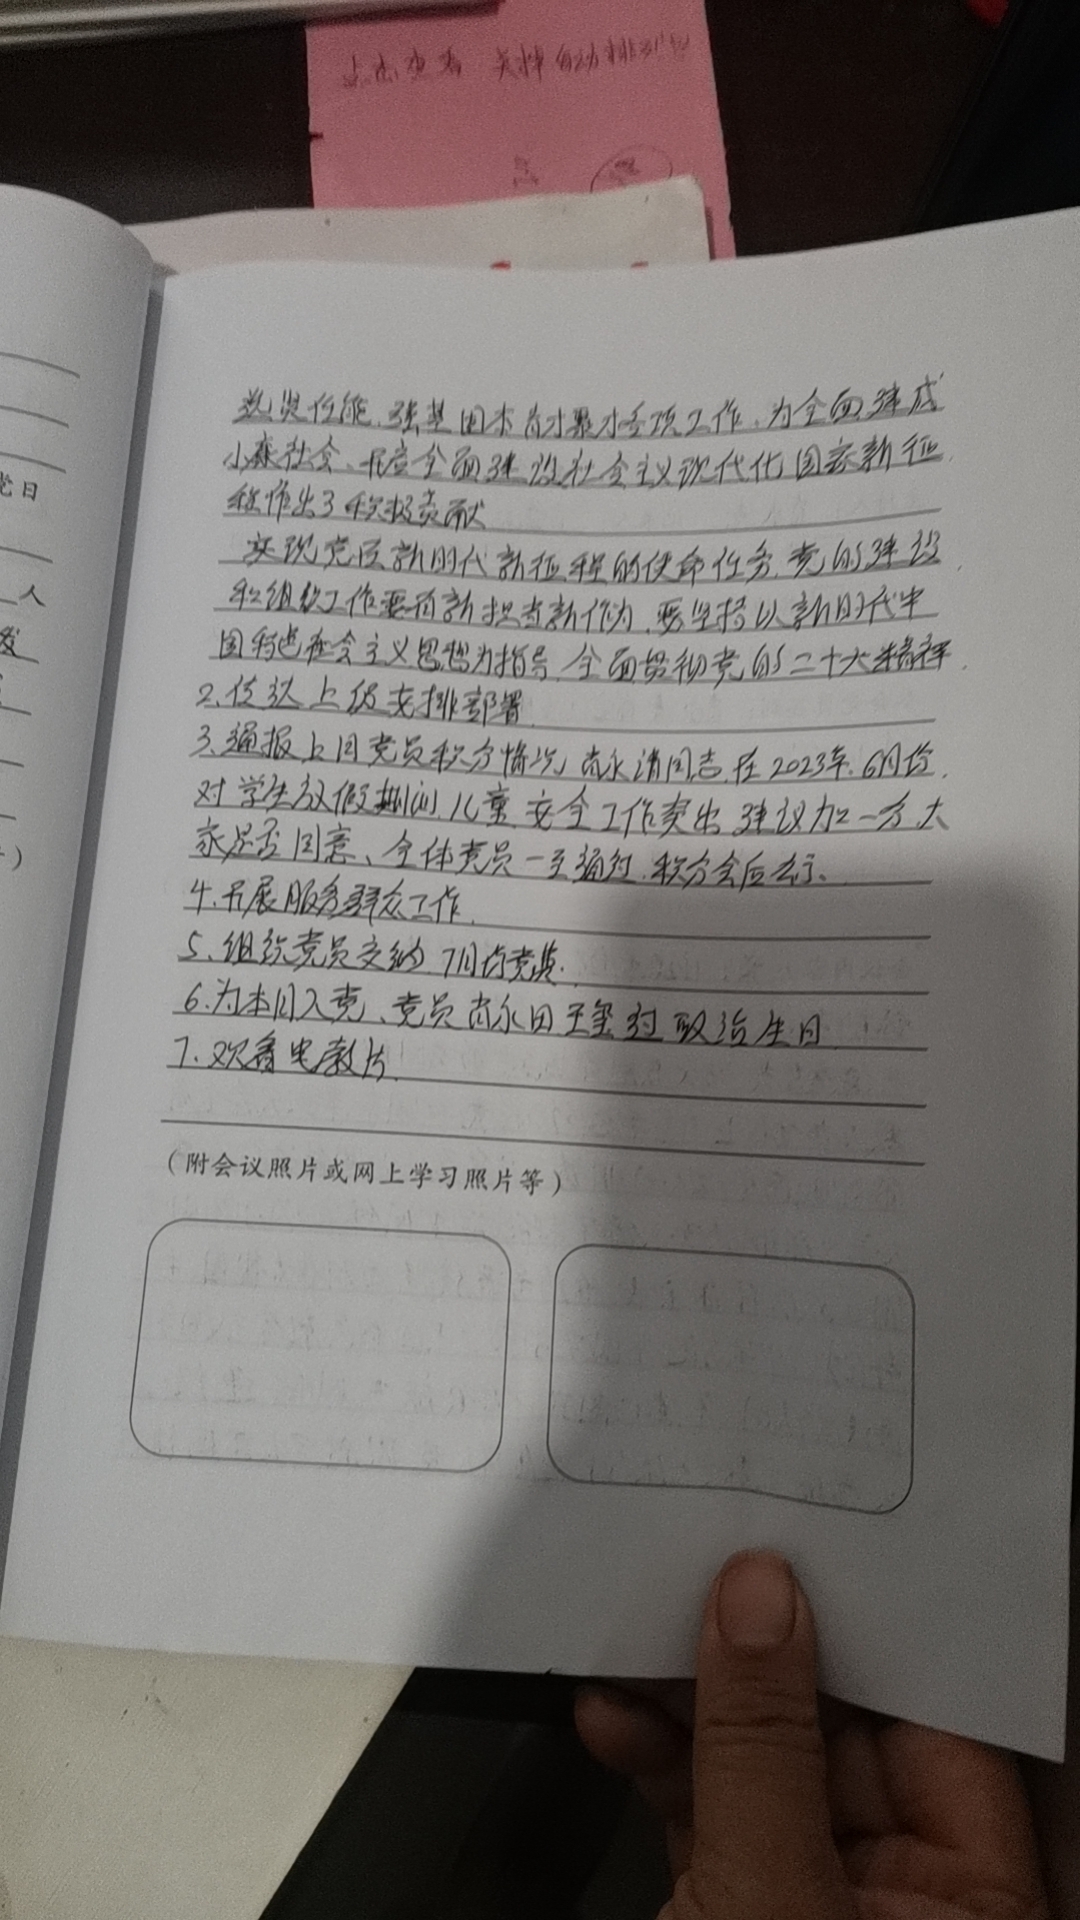 选贤任能、强基固本育才聚才各项工作、为全面建成
小康社会、开启全面建设社会主义现代化国家新征
程作出了积极贡献
实现党在新时代新征程的使命任务，党的建设
和组织工作要有新担当新作为，要坚持以新时代中
国特色社会主义思想为指导，全面贯彻党的二十大精神，
2、传达上级安排部署
3、通报上月党员积分情况，尚永清同志，在2023年，6月份，
对学生放假期间，儿童安全工作突出 建议加一分大
家是否同意、全体党员一至通过，积分会后公示、
4、开展服务群众工作，
5、组织党员交纳，7月份党费，
6、为本月入党、党员尚永田 王玺过政治生日
7、观看电教片
（附会议照片或网上学习照片等）
党日
人
发